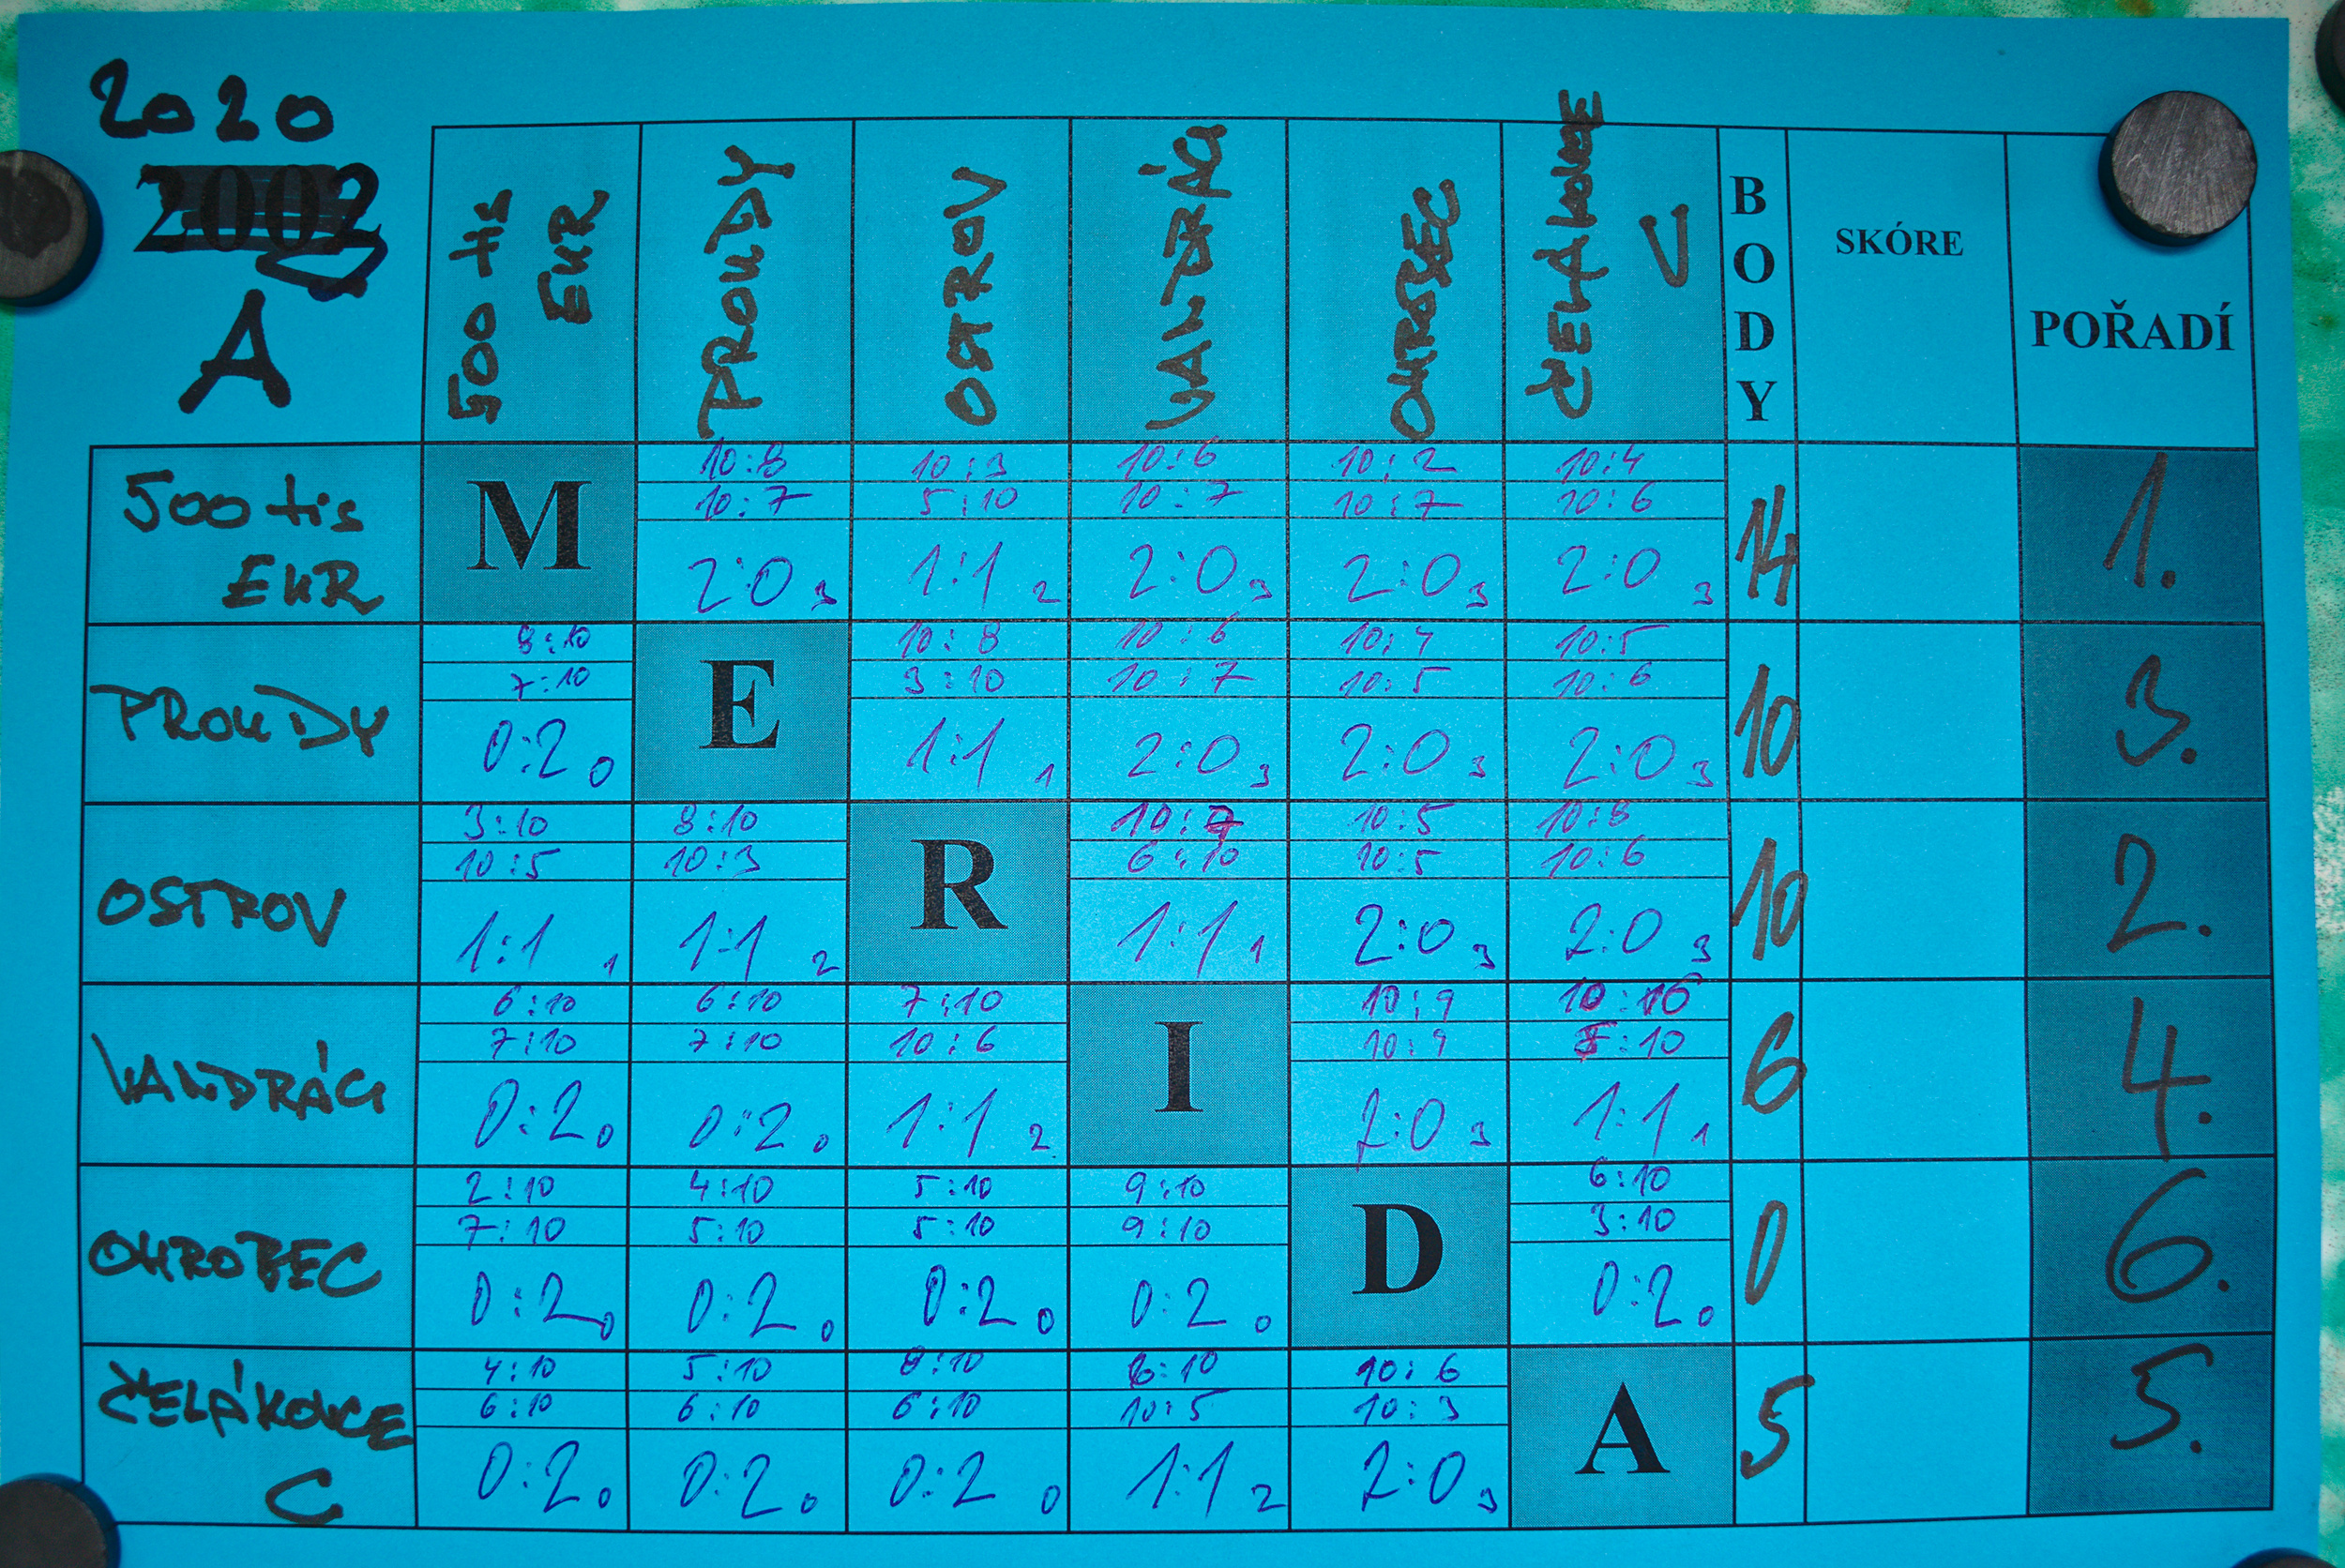 2020
2002
A
500 tis EUR PROUDY OSTROV VANDRÁCI OHROBEC ČELÁKOVICE C BODY SKÓRE POŘADÍ
10:8 10:3 10:6 10:2 10:4
10:7 5:10 10:7 10:7 10:6
500 tis EUR M 2:0 3 1:1 2 2:0 3 2:0 3 2:0 3 14 1.
8:10 10:8 10:6 10:4 10:5
7:10 3:10 10:7 10:5 10:6
PROUDY 0:2 0 E 1:1 1 2:0 3 2:0 3 2:0 3 10 3.
3:10 8:10 10:7 10:5 10:8
10:5 10:3 6:10 10:5 10:6
OSTROV 1:1 1 1:1 2 R 1:1 1 2:0 3 2:0 3 10 2.
6:10 6:10 7:10 10:9
7:10 7:10 10:6 10:9 5:10
VANDRÁCI 0:2 0 0:2 0 1:1 2 I 2:0 3 1:1 1 6 4.
2:10 4:10 5:10 9:10 6:10
7:10 5:10 5:10 9:10 3:10
OHROBEC 0:2 0 0:2 0 0:2 0 0:2 0 D 0:2 0 0 6.
4:10 5:10 8:10 6:10 10:6
6:10 6:10 6:10 10:5 10:3
ČELÁKOVICE C 0:2 0 0:2 0 0:2 0 1:1 2 2:0 3 A 5 5.